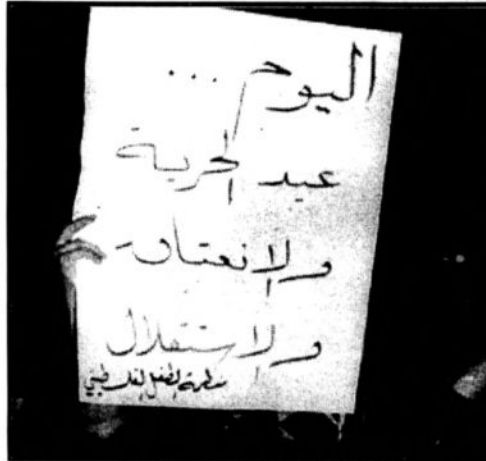 اليوم ...
عيد الحرية
والانعتاق
والاستقلال
منظمة الطفل الفلسطيني